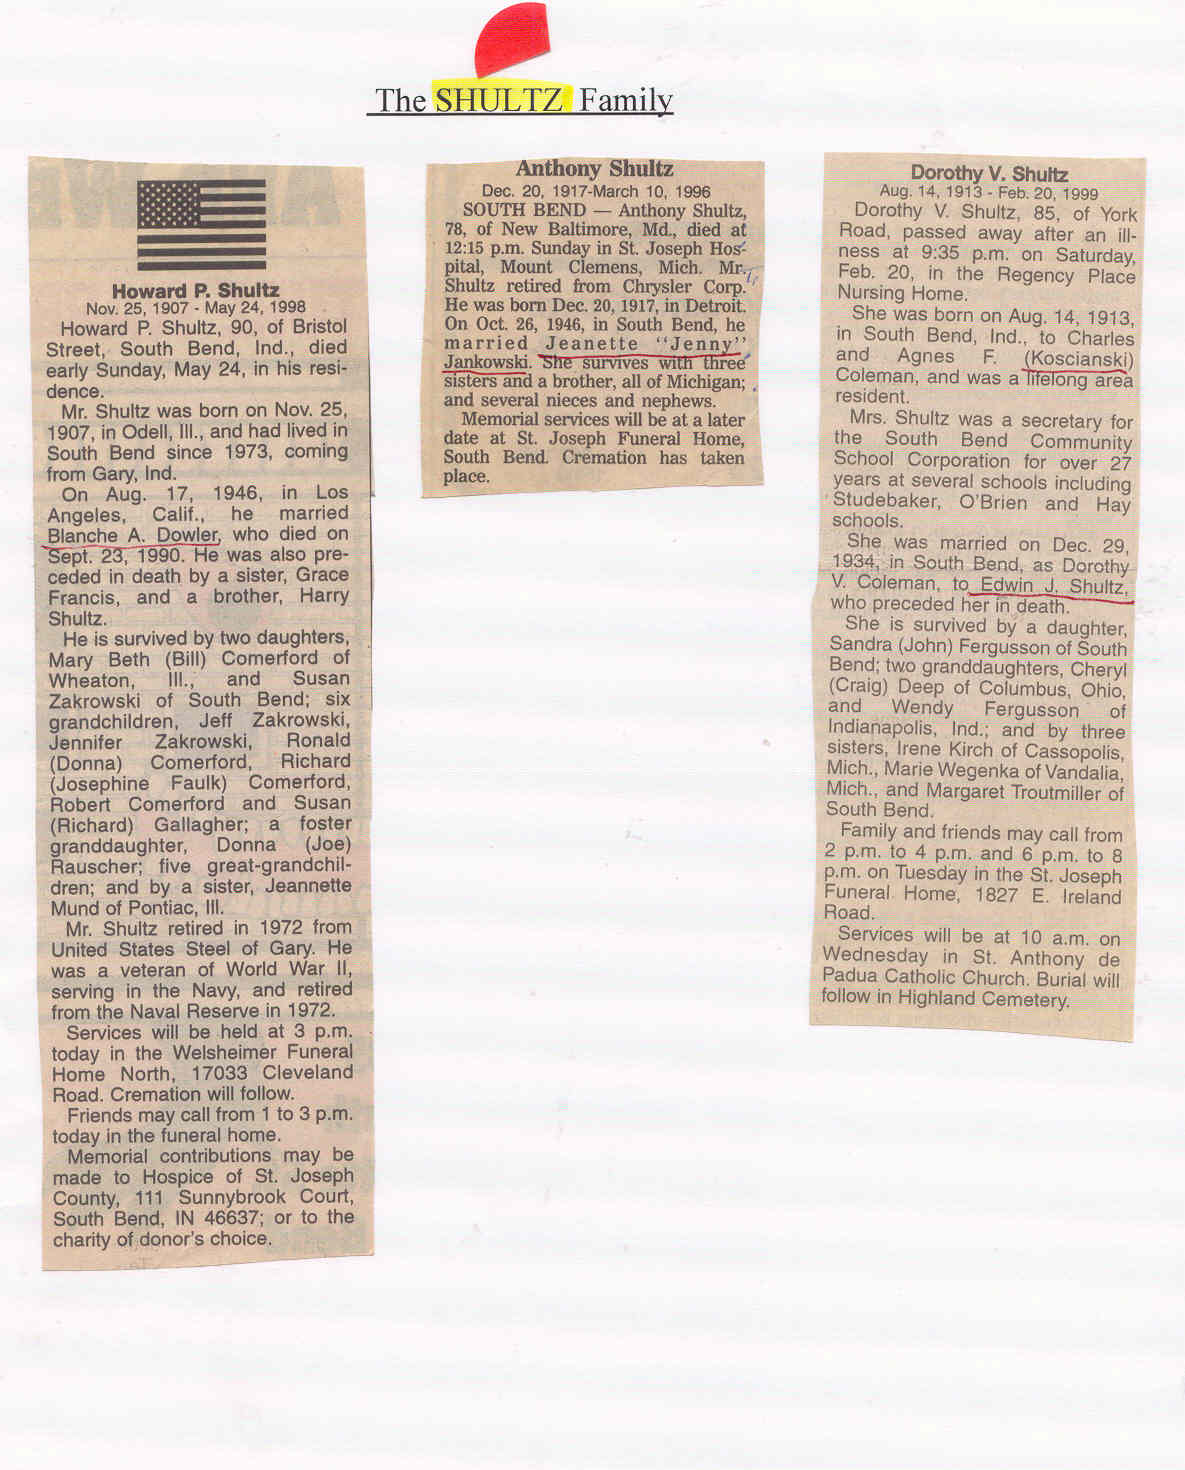 The SHULTZ Family
Howard P. Shultz
Nov. 25, 1907 - May 24, 1998
Howard P. Shultz, 90, of Bristol
Street, South Bend, Ind., died
early Sunday, May 24, in his resi-
dence.
Mr. Shultz was born on Nov. 25,
1907, in Odell, Ill., and had lived in
South Bend since 1973, coming
from Gary, Ind.
On Aug. 17, 1946, in Los
Angeles, Calif., he married
Blanche A. Dowler, who died on
Sept. 23, 1990. He was also pre-
ceded in death by a sister, Grace
Francis, and a brother, Harry
Shultz.
He is survived by two daughters,
Mary Beth (Bill) Comerford of
Wheaton, Ill., and Susan
Zakrowski of South Bend; six
grandchildren, Jeff Zakrowski,
Jennifer Zakrowski, Ronald
(Donna) Comerford, Richard
(Josephine Faulk) Comerford,
Robert Comerford and Susan
(Richard) Gallagher; a foster
granddaughter, Donna (Joe)
Rauscher; five great-grandchil-
dren; and by a sister, Jeannette
Mund of Pontiac, Ill.
Mr. Shultz retired in 1972 from
United States Steel of Gary. He
was a veteran of World War II,
serving in the Navy, and retired
from the Naval Reserve in 1972.
Services will be held at 3 p.m.
today in the Welsheimer Funeral
Home North, 17033 Cleveland
Road. Cremation will follow.
Friends may call from 1 to 3 p.m.
today in the funeral home.
Memorial contributions may be
made to Hospice of St. Joseph
County, 111 Sunnybrook Court,
South Bend, IN 46637; or to the
charity of donor's choice.
Anthony Shultz
Dec. 20, 1917-March 10, 1996
SOUTH BEND — Anthony Shultz,
78, of New Baltimore, Md., died at
12:15 p.m. Sunday in St. Joseph Hos-
pital, Mount Clemens, Mich. Mr.
Shultz retired from Chrysler Corp.
He was born Dec. 20, 1917, in Detroit.
On Oct. 26, 1946, in South Bend, he
married Jeanette "Jenny"
Jankowski. She survives with three
sisters and a brother, all of Michigan;
and several nieces and nephews.
Memorial services will be at a later
date at St. Joseph Funeral Home,
South Bend. Cremation has taken
place.
Dorothy V. Shultz
Aug. 14, 1913 - Feb. 20, 1999
Dorothy V. Shultz, 85, of York
Road, passed away after an ill-
ness at 9:35 p.m. on Saturday,
Feb. 20, in the Regency Place
Nursing Home.
She was born on Aug. 14, 1913,
in South Bend, Ind., to Charles
and Agnes F. (Koscianski)
Coleman, and was a lifelong area
resident.
Mrs. Shultz was a secretary for
the South Bend Community
School Corporation for over 27
years at several schools including
Studebaker, O'Brien and Hay
schools.
She was married on Dec. 29,
1934, in South Bend, as Dorothy
V. Coleman, to Edwin J. Shultz,
who preceded her in death.
She is survived by a daughter,
Sandra (John) Fergusson of South
Bend; two granddaughters, Cheryl
(Craig) Deep of Columbus, Ohio,
and Wendy Fergusson of
Indianapolis, Ind.; and by three
sisters, Irene Kirch of Cassopolis,
Mich., Marie Wegenka of Vandalia,
Mich., and Margaret Troutmiller of
South Bend.
Family and friends may call from
2 p.m. to 4 p.m. and 6 p.m. to 8
p.m. on Tuesday in the St. Joseph
Funeral Home, 1827 E. Ireland
Road.
Services will be at 10 a.m. on
Wednesday in St. Anthony de
Padua Catholic Church. Burial will
follow in Highland Cemetery.